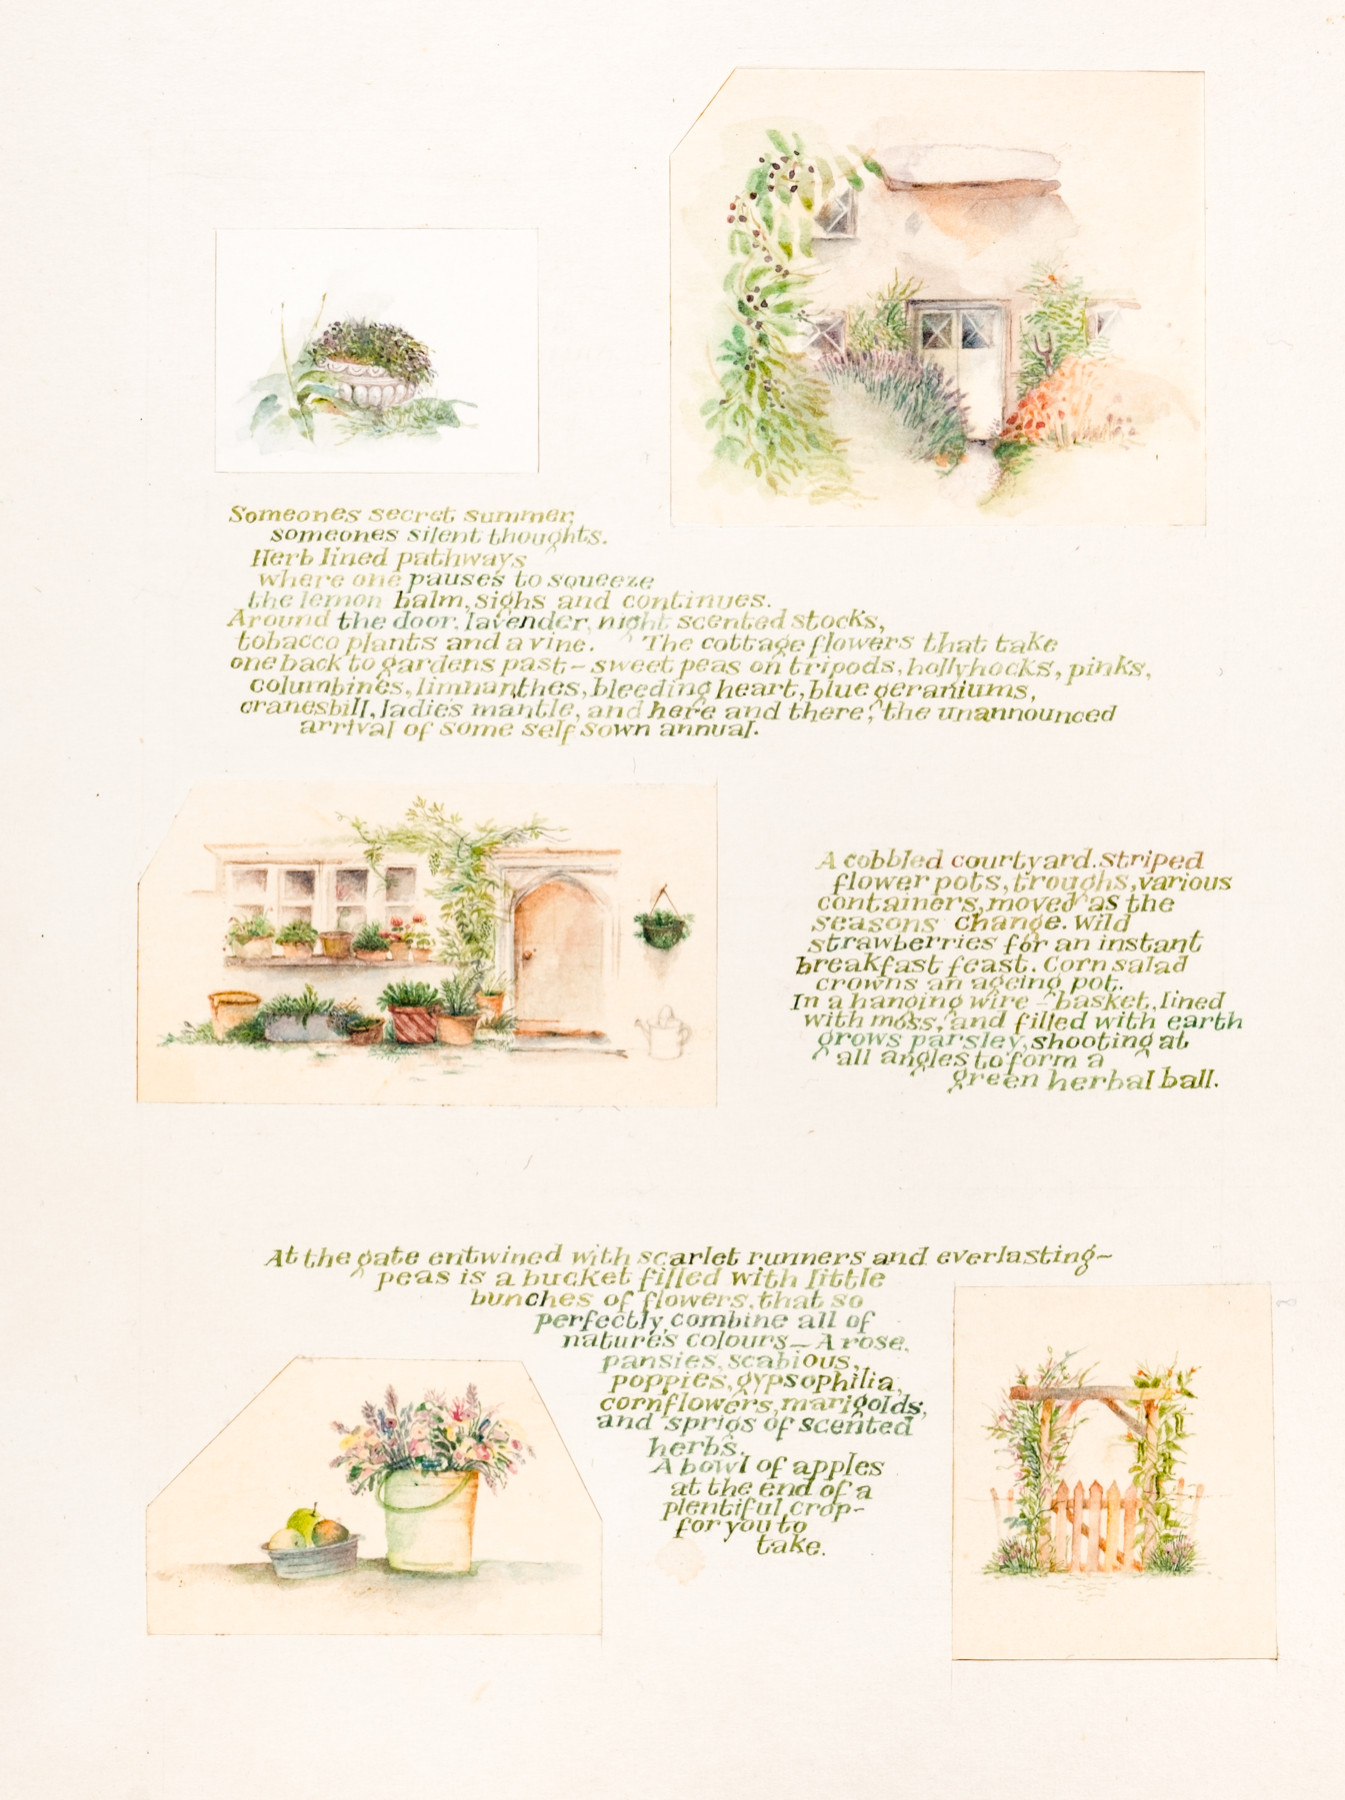 Someones secret summer,
someones silent thoughts.
Herb lined pathways
where one pauses to squeeze
the lemon balm, sighs and continues.
Around the door, lavender, night scented stocks,
tobacco plants and a vine. The cottage flowers that take
one back to gardens past – sweet peas on tripods, hollyhocks, pinks,
columbines, limnanthes, bleeding heart, blue geraniums,
cranesbill, ladies mantle, and here and there, the unannounced
arrival of some self sown annual.
A cobbled courtyard. striped
flower pots, troughs, various
containers, moved as the
seasons change. Wild
strawberries for an instant
breakfast feast. Corn salad
crowns an ageing pot.
In a hanging wire – basket, lined
with moss, and filled with earth
grows parsley, shooting at
all angles to form a
green herbal ball.
At the gate entwined with scarlet runners and everlasting–
peas is a bucket filled with little
bunches of flowers, that so
perfectly combine all of
nature's colours – A rose,
pansies, scabious,
poppies, gypsophilia,
cornflowers, marigolds,
and sprigs of scented
herbs.
A bowl of apples
at the end of a
plentiful crop–
for you to
take.